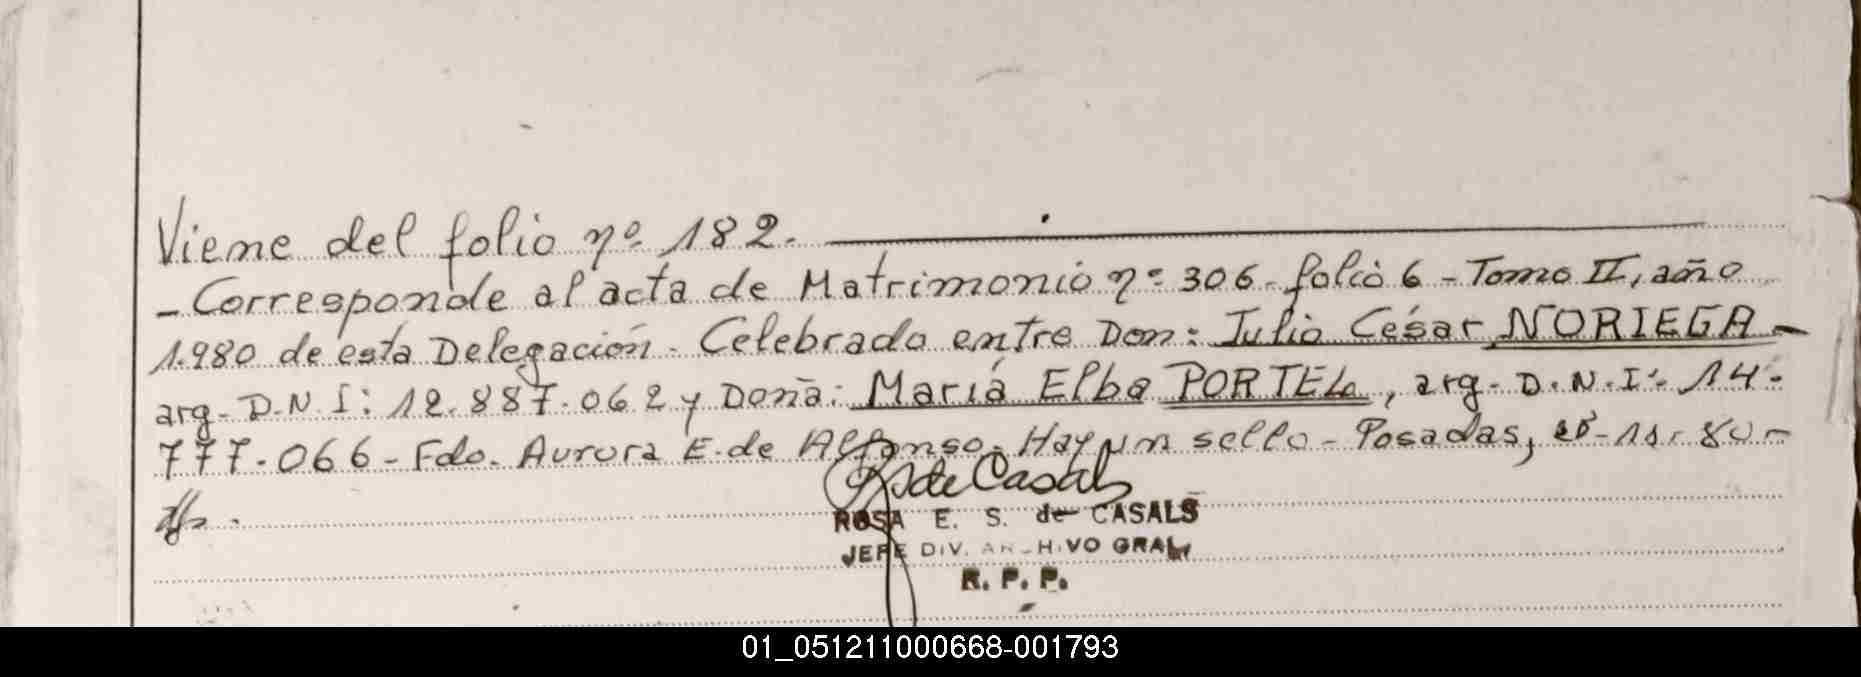 Viene del folio nº 182.
- Corresponde al acta de Matrimonio nº 306 - folio 6 - Tomo II, año
1.980 de esta Delegación - Celebrado entre Don: Julio César NORIEGA -
arg - D.N.I: 12.887.062 y Doña: María Elba PORTEL, arg - D.N.I: 14-
777.066 - Fdo. Aurora E. de Alfonso - Hay un sello - Posadas, -11-80-
de Casals
ROSA E. S. de CASALS
JEFE DIV. ARCHIVO GRAL
R. P. P.
01_051211000668-001793